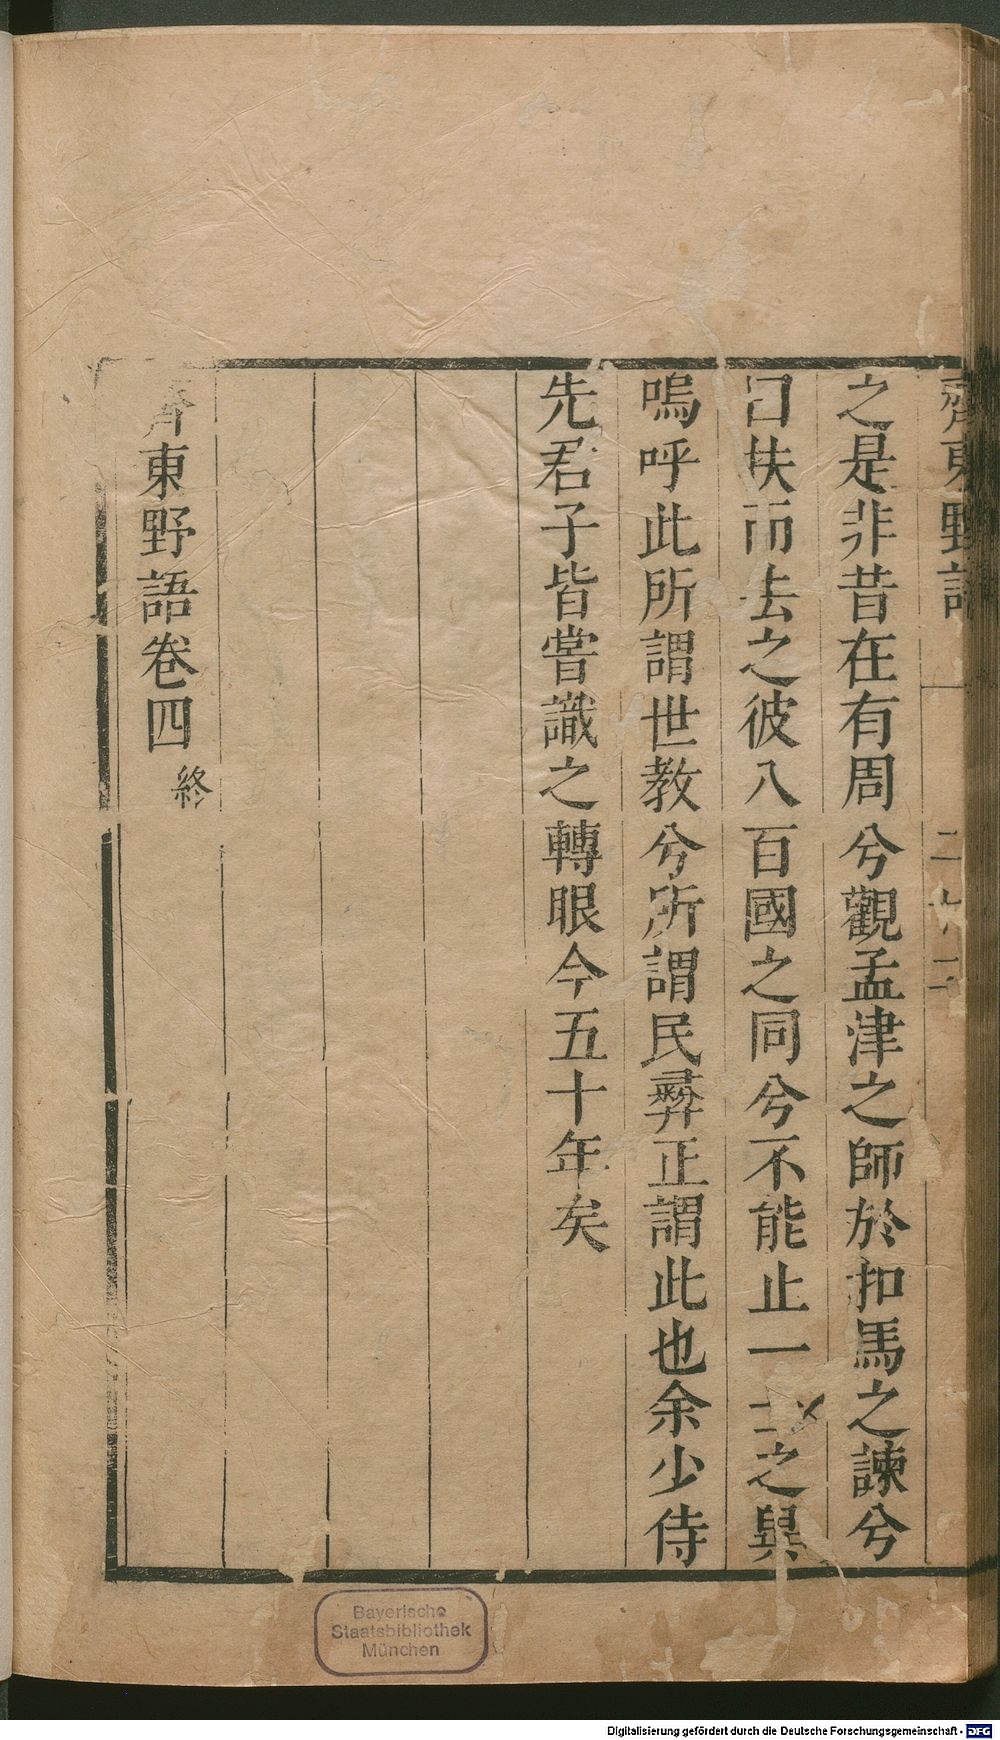 齊東野語
之是非昔在有周兮觀孟津之師於扣馬之諫兮
曰扶而去之彼八百國之同兮不能止一士之異
嗚呼此所謂世教兮所謂民彝正謂此也余少侍
先君子皆嘗識之轉眼今五十年矣
齊東野語卷四 終
Bayerische
Staatsbibliothek
München
Digitalisierung gefördert durch die Deutsche Forschungsgemeinschaft - DFG